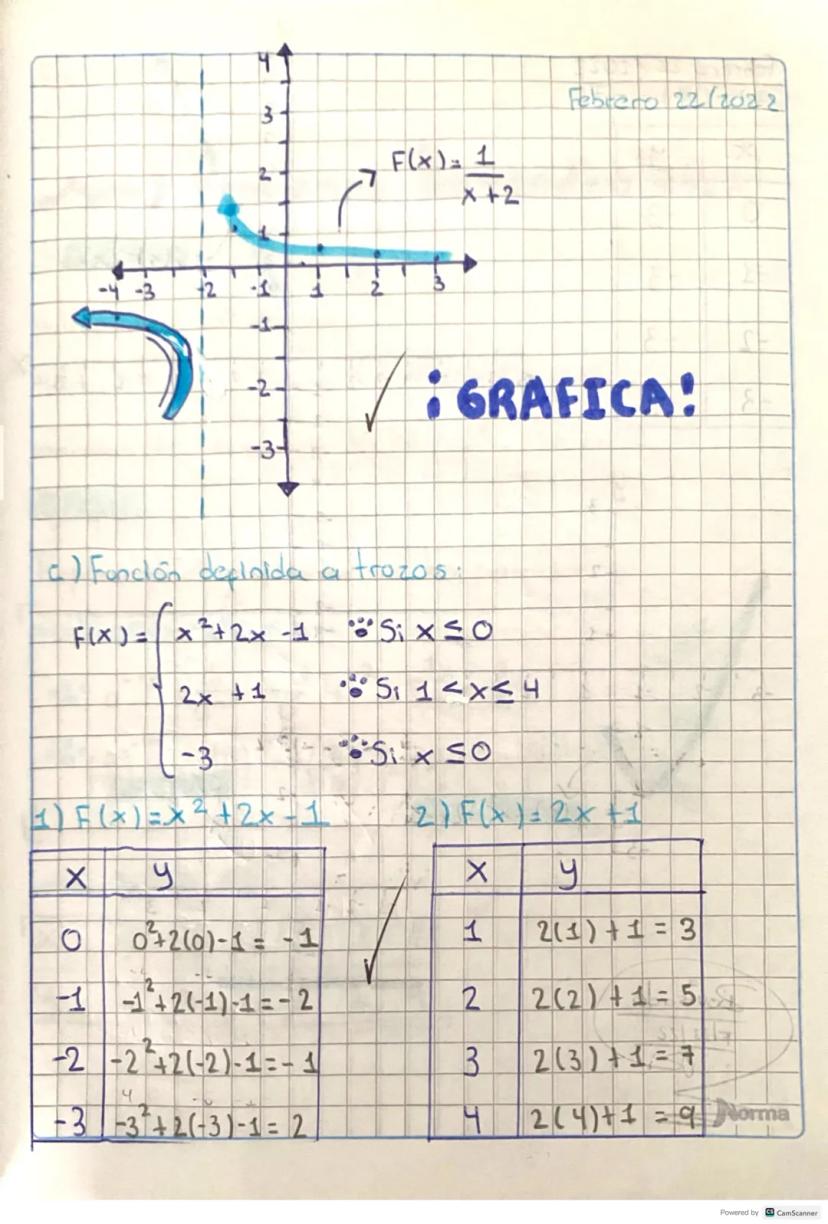 4
Febrero 22/2022
3
F(x)= 1/x+2
2
1
-4 -3 -2 -1 1 2 3
-1
-2
¡GRAFICA!
-3
c) Función definida a trozos:
F(x)= { x²+2x -1 Si x ≤ 0
2x +1 Si 1 < x ≤ 4
-3 Si x ≤ 0
1) F(x)=x²+2x-1 2) F(x)= 2x+1
x y x y
0 0²+2(0)-1 = -1 1 2(1)+1 = 3
-1 -1²+2(-1)-1=-2 2 2(2)+1 = 5
-2 -2²+2(-2)-1=-1 3 2(3)+1 = 7
-3 -3²+2(-3)-1= 2 4 2(4)+1 = 9
Norma
Powered by CS CamScanner